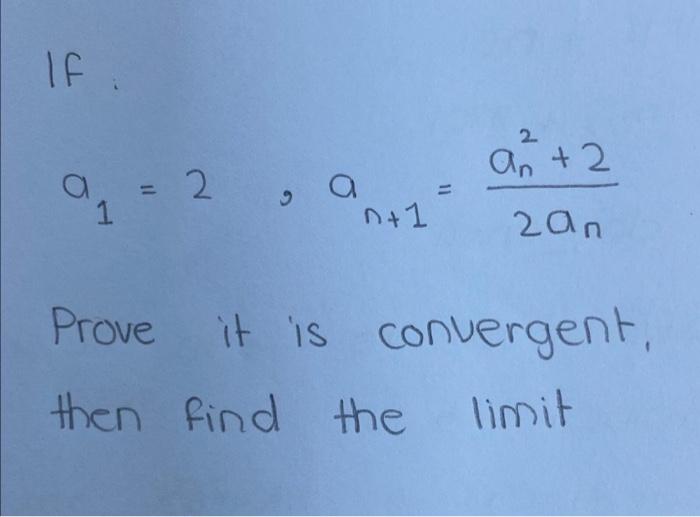 If
a₁ = 2 , aₙ₊₁ = (aₙ² + 2) / (2aₙ)
Prove it is convergent,
then find the limit